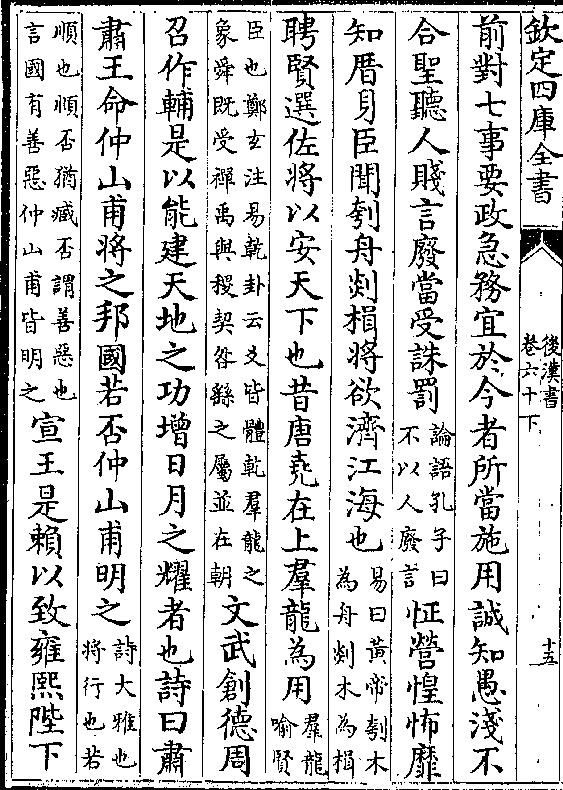 欽定四庫全書
後漢書
卷六十下
十五
前對七事要政急務宜於今者所當施用誠知愚淺不
合聖聽人賤言廢當受誅罰
論語孔子曰
不以人廢言
怔營惶怖靡
知厝身臣聞刳舟剡楫將欲濟江海也
易曰黃帝刳木
為舟剡木為楫
聘賢選佐將以安天下也昔唐堯在上羣龍為用
羣龍
喻賢
臣也鄭玄注易乾卦云爻皆體乾羣龍之
象舜既受禪禹與稷契咎繇之屬並在朝
文武創德周
召作輔是以能建天地之功增日月之耀者也詩曰肅
肅王命仲山甫將之邦國若否仲山甫明之
詩大雅也
將行也若
順也順否猶臧否謂善惡也
言國有善惡仲山甫皆明之
宣王是賴以致雍熙陛下